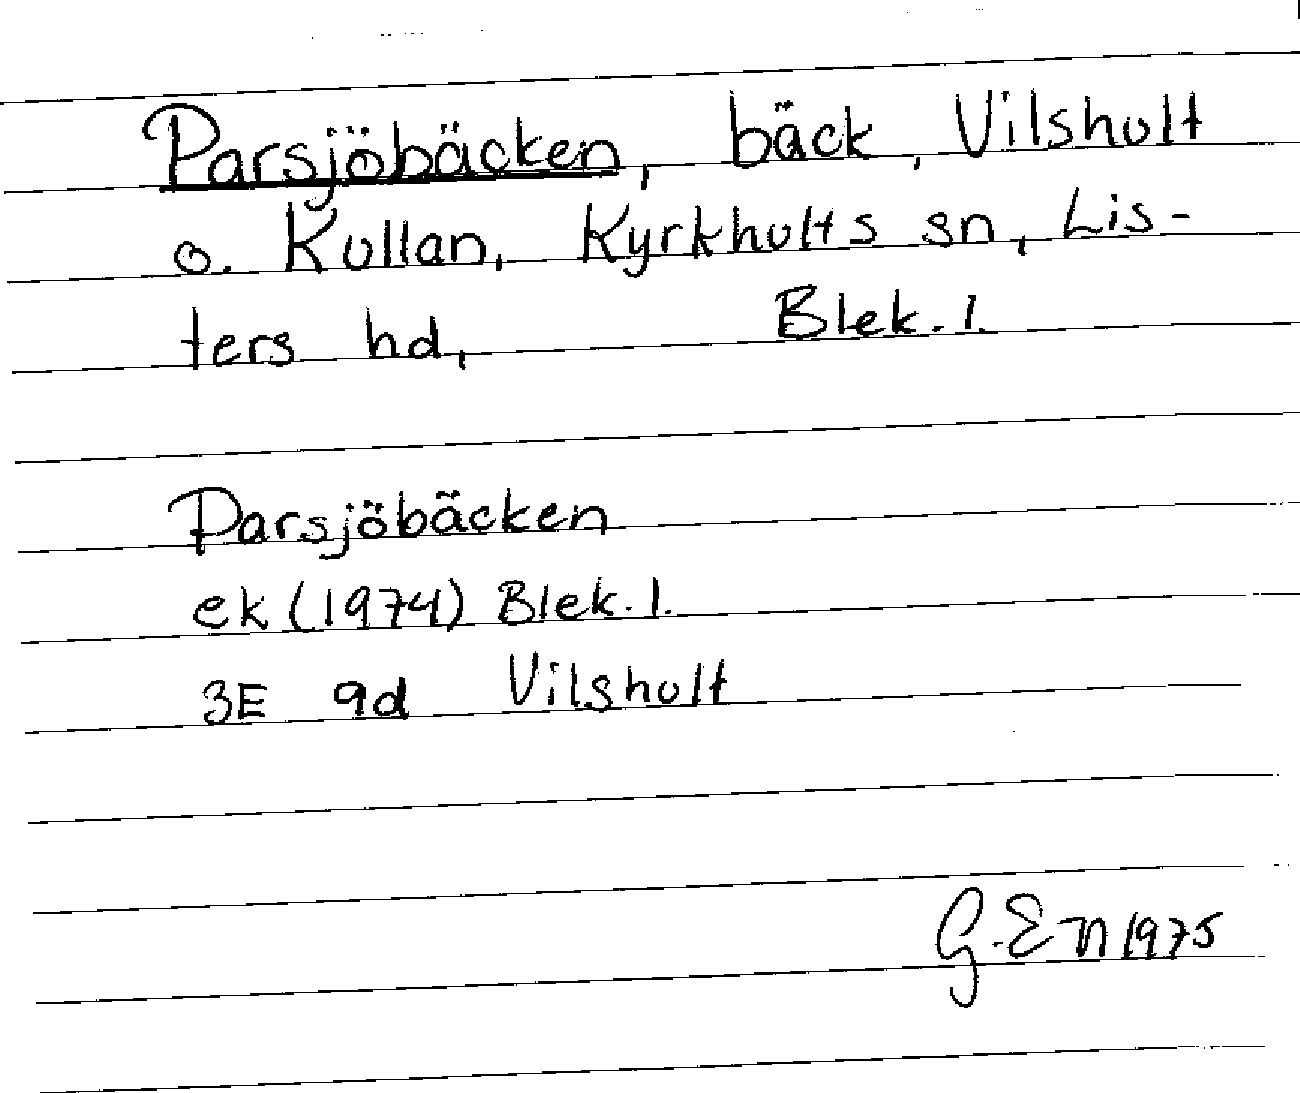 Parsjöbäcken, bäck, Vilshult
o. Kullan, Kyrkhults sn, Lis-
ters hd, Blek. l.
Parsjöbäcken
ek (1974) Blek. l.
3E 9d Vilshult
G. En 1975